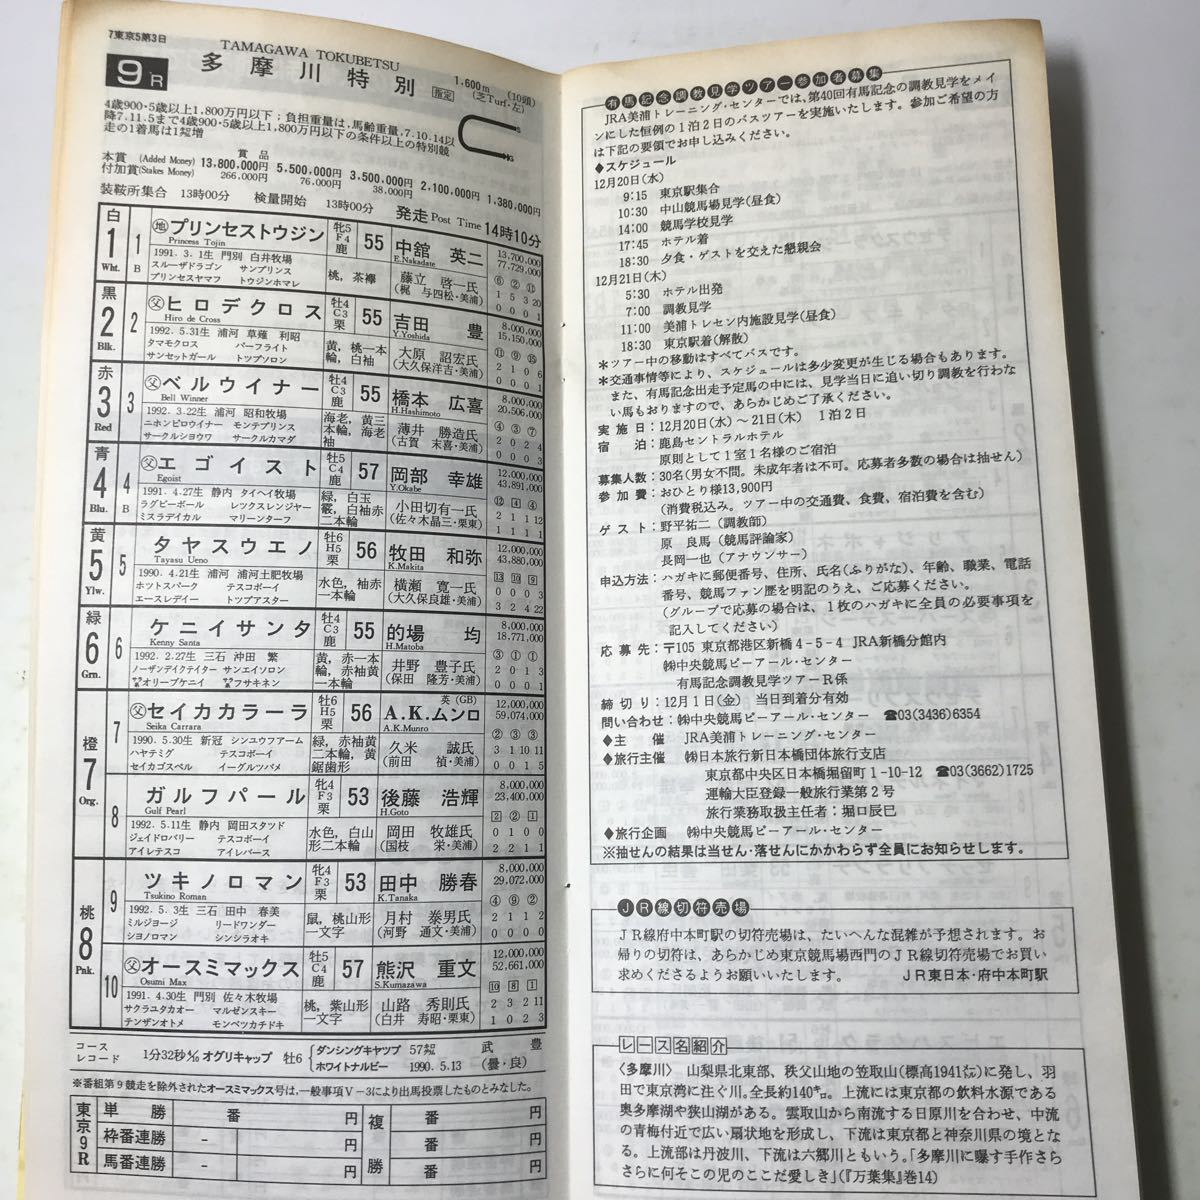 7東京5第3日
TAMAGAWA TOKUBETSU
9R 多摩川特別 指定 1,600m (芝Turf·左) (10頭)
4歳900·5歳以上1,800万円以下；負担重量は,馬齢重量,7.10.14以
降7.11.5まで4歳900·5歳以上1,800万円以下の条件以上の特別競
走の1着馬は1瓩増
賞品
本賞 (Added Money) 13,800,000円 5,500,000円 3,500,000円 2,100,000円 1,380,000円
付加賞(Stakes Money) 266,000円 76,000円 38,000円
装鞍所集合 13時00分 検量開始 13時00分 発走 Post Time 14時10分
白 1 Wht.
1 B
地 プリンセストウジン
Princess Tojin
1991. 3. 1生 門別 白井牧場
スルーザドラゴン サンプリンス
プリンセスヤマフ トウジンホマレ
牝5 F4 鹿 55
桃, 茶襷
中舘 英二
E.Nakadate
藤立 啓一氏
(梶 与四松·美浦)
13,700,000
77,729,000
⑥ ② ⑪
1 5 3 20
0 0 0 1
黒 2 Blk.
2
父 ヒロデクロス
Hiro de Cross
1992. 5.31生 浦河 草薙 利昭
タマモクロス パーフライト
サンセットガール トツプソロン
牡4 C3 栗 55
黄, 桃一本
輪, 白袖
吉田 豊
Y.Yoshida
大原 詔宏氏
(大久保洋吉·美浦)
8,000,000
15,150,000
⑪ ⑨ ⑮
2 1 0 6
0 0 0 1
赤 3 Red
3
父 ベルウイナー
Bell Winner
1992. 3.22生 浦河 昭和牧場
ニホンピロウイナー モンテプリンス
サークルショウワ サークルカマダ
牡4 C3 鹿 55
海老, 黄三
本輪, 海老
袖
橋本 広喜
H.Hashimoto
薄井 勝造氏
(古賀 末喜·美浦)
8,000,000
20,506,000
④ ③ ⑦
2 0 2 4
0 0 0 3
青 4 Blu.
4 B
父 エゴイスト
Egoist
1991. 4.27生 静内 タイヘイ牧場
ラグビーボール レツクスレンジャー
ミスラデイカル マリーンターフ
牡5 C4 鹿 57
緑, 白玉
霰, 白袖赤
二本輪
岡部 幸雄
Y.Okabe
小田切有一氏
(佐々木晶三·栗東)
12,000,000
43,891,000
⑫ ④ ④
2 1 1 12
1 1 1 1
黄 5 Ylw.
5
タヤスウエノ
Tayasu Ueno
1990. 4.21生 浦河 浦河土肥牧場
ホットスパーク テスコボーイ
エースレデイー トツプアスター
牡6 H5 栗 56
水色, 袖赤
一本輪
牧田 和弥
K.Makita
横瀬 寛一氏
(大久保良雄·美浦)
12,000,000
43,880,000
13 10 9
0 0 0 0
3 2 4 22
緑 6 Grn.
6
ケニイサンタ
Kenny Santa
1992. 2.27生 三石 沖田 繁
ノーザンデイクテイター サンエイソロン
オリーブケニイ フサキネン
牡4 C3 栗 55
黄, 赤一本
輪, 赤袖黄
一本輪
的場 均
H.Matoba
井野 豊子氏
(保田 隆芳·美浦)
8,000,000
18,771,000
③ ① ①
2 0 1 3
0 0 0 1
橙 7 Org.
7
父 セイカカラーラ
Seika Carrara
1990. 5.30生 新冠 シンユウフアーム
ハヤテミグ テスコボーイ
セイカゴスペル イーグルツバメ
牡6 H5 鹿 56
緑, 赤袖黄
二本輪, 黄
鋸歯形
英 (GB)
A.K.ムンロ
A.K.Munro
久米 誠氏
(前田 禎·美浦)
12,000,000
59,074,000
② ③ ③
3 1 10 11
0 0 1 5
8
ガルフパール
Gulf Pearl
1992. 5.11生 静内 岡田スタツド
ジェイドロバリー テスコボーイ
アイレテスコ アイレバース
牝4 F3 鹿 53
水色, 白山
形二本輪
後藤 浩輝
H.Goto
岡田 牧雄氏
(国枝 栄·美浦)
8,000,000
23,400,000
2 2 1
0 1 0 0
2 2 1 1
桃 8 Pnk.
9
ツキノロマン
Tsukino Roman
1992. 5. 3生 三石 田中 春美
ミルジョージ リードワンダー
シヨノロマン シンシラオキ
牝4 F3 栗 53
鼠, 桃山形
一文字
田中 勝春
K.Tanaka
月村 泰男氏
(河野 通文·美浦)
8,000,000
29,072,000
④ ⑨ ②
2 1 1 2
0 0 0 1
10
父 オースミマックス
Osumi Max
1991. 4.30生 門別 佐々木牧場
サクラユタカオー マルゼンスキー
テンザンオトメ モンベツカチドキ
牡5 C4 鹿 57
桃, 紫山形
一文字
熊沢 重文
S.Kumazawa
山路 秀則氏
(白井 寿昭·栗東)
12,000,000
52,661,000
10 8 1
2 3 2 11
1 0 2 3
コース
レコード 1分32秒4/10 オグリキャップ 牡6 ダンシングキヤツプ ホワイトナルビー 57キロ 武 豊 1990. 5.13 (曇·良)
※番組第9競走を除外されたオースミマックス号は,一般事項Ⅴ－3により出馬投票したものとみなした。
東京9R
単勝 番 円
枠番連勝 － 円
馬番連勝 － 円
複勝 番 円
番 円
番 円
有馬記念調教見学ツアー参加者募集
JRA美浦トレーニング·センターでは、第40回有馬記念の調教見学をメイ
ンにした恒例の1泊2日のバスツアーを実施いたします。参加ご希望の方
は下記の要領でお申し込みください。
◆スケジュール
12月20日(水)
9:15 東京駅集合
10:30 中山競馬場見学(昼食)
14:00 競馬学校見学
17:45 ホテル着
18:30 夕食·ゲストを交えた懇親会
12月21日(木)
5:30 ホテル出発
7:00 調教見学
11:00 美浦トレセン内施設見学(昼食)
18:30 東京駅着(解散)
＊ツアー中の移動はすべてバスです。
＊交通事情等により、スケジュールは多少変更が生じる場合もあります。
また、有馬記念出走予定馬の中には、見学当日に追い切り調教を行わな
い馬もおりますので、あらかじめご了承ください。
実施日：12月20日(水)～21日(木) 1泊2日
宿泊：鹿島セントラルホテル
原則として1室1名様のご宿泊
募集人数：30名(男女不問。未成年者は不可。応募者多数の場合は抽せん)
参加費：おひとり様13,900円
(消費税込み。ツアー中の交通費、食費、宿泊費を含む)
ゲスト：野平祐二(調教師)
原 良馬(競馬評論家)
長岡一也(アナウンサー)
申込方法：ハガキに郵便番号、住所、氏名(ふりがな)、年齢、職業、電話
番号、競馬ファン歴を明記のうえ、ご応募ください。
(グループで応募の場合は、1枚のハガキに全員の必要事項を
記入してください)
応募先：〒105 東京都港区新橋4-5-4 JRA新橋分館内
㈱中央競馬ピーアール·センター
有馬記念調教見学ツアーR係
締切り：12月1日(金) 当日到着分有効
問い合わせ：㈱中央競馬ピーアール·センター ☎03(3436)6354
◆主催 JRA美浦トレーニング·センター
◆旅行主催 ㈱日本旅行新日本橋団体旅行支店
東京都中央区日本橋堀留町1-10-12 ☎03(3662)1725
運輸大臣登録一般旅行業第2号
旅行業務取扱主任者：堀口辰巳
◆旅行企画 ㈱中央競馬ピーアール·センター
※抽せんの結果は当せん·落せんにかかわらず全員にお知らせします。
JR線切符売場
JR線府中本町駅の切符売場は、たいへんな混雑が予想されます。お
帰りの切符は、あらかじめ東京競馬場西門のJR線切符売場でお買い
求めくださるようお願いいたします。 JR東日本·府中本町駅
レース名紹介
〈多摩川〉 山梨県北東部、秩父山地の笠取山(標高1941メートル)に発し、羽
田で東京湾に注ぐ川。全長約140キロ。上流には東京都の飲料水源である
奥多摩湖や狭山湖がある。雲取山から南流する日原川を合わせ、中流
の青梅付近で広い扇状地を形成し、下流は東京都と神奈川県の境とな
る。上流部は丹波川、下流は六郷川ともいう。「多摩川に曝す手作さら
さらに何そこの児のここだ愛しき」(『万葉集』巻14)